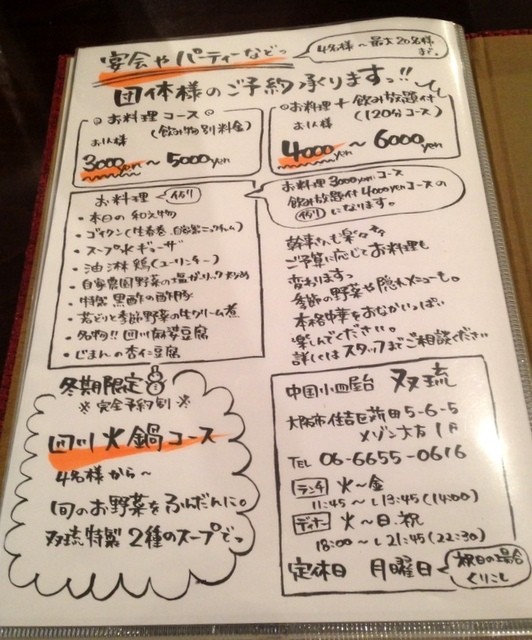 宴会や パーティーなどっ
4名様〜最大20名様
まで。
団体様のご予約承りますっ!!
お料理コース
お1人様 (飲み物別料金)
3000yen 〜 5000yen
お料理 + 飲み放題付
お1人様 (120分コース)
4000yen 〜 6000yen
お料理 例り
・本日の和え物
・スープ水ギーザ
・油淋鶏(ユーリンチー)
・自家農園野菜の塩ガーリック炒め
・特製 黒酢の酢豚
・若どりと季節野菜の生クリーム煮
・名物!! 四川麻婆豆腐
・じまんの杏仁豆腐
お料理3000yenコース
飲み放題付4000yenコースの
例りになります。
幹事さんも楽々♪
ご予算に応じてお料理も
変わりますっ
季節の野菜や隠れメニューも。
本格中華をおなかいっぱい
楽しんでください。
詳しくはスタッフまでご相談ください
冬期限定
※完全予約制※
四川火鍋コース
4名様から〜
旬のお野菜をふんだんに。
双琉特製 2種のスープでっ
中国小皿屋台 双琉
大阪市住吉区苅田5-6-5
メゾン大万1F
TEL 06-6655-0616
ランチ 火〜金
11:45〜L13:45(14:00)
ディナー 火〜日.祝
18:00〜L21:45(22:30)
定休日 月曜日
祝日の場合
くりこし